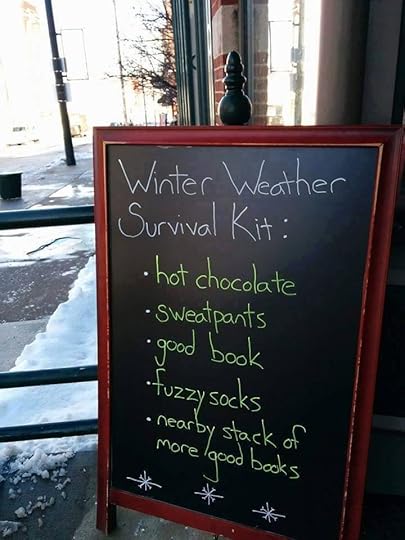 Winter Weather
Survival Kit:
• hot chocolate
• sweatpants
• good book
• fuzzy socks
• nearby stack of
more good books